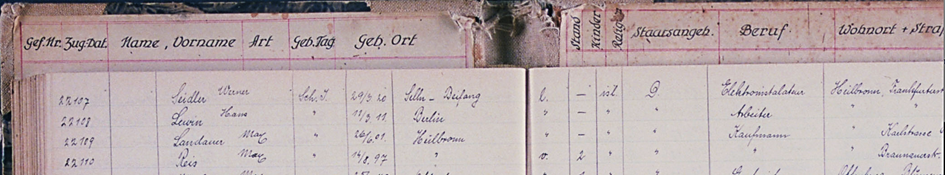 Gef.Nr. Zug.Dat. Name, Vorname Art Geb.Tag Geb. Ort Stand Kinder Religion Staatsangeh. Beruf Wohnort + Straß
22107 Seidler Werner Sch.J. 29/3. 20 l. — isl. D. Elektroinstalateur Heilbronn, Frankfurterst
22108 Lewin Hans " 11/3. 11 Berlin " — " " Arbeiter " "
22109 Landauer Max " 26/6. 01. Heilbronn " — " " Kaufmann " Karlstrasse
22110 Reis Max " 14/8. 97 " v. 2 " " "